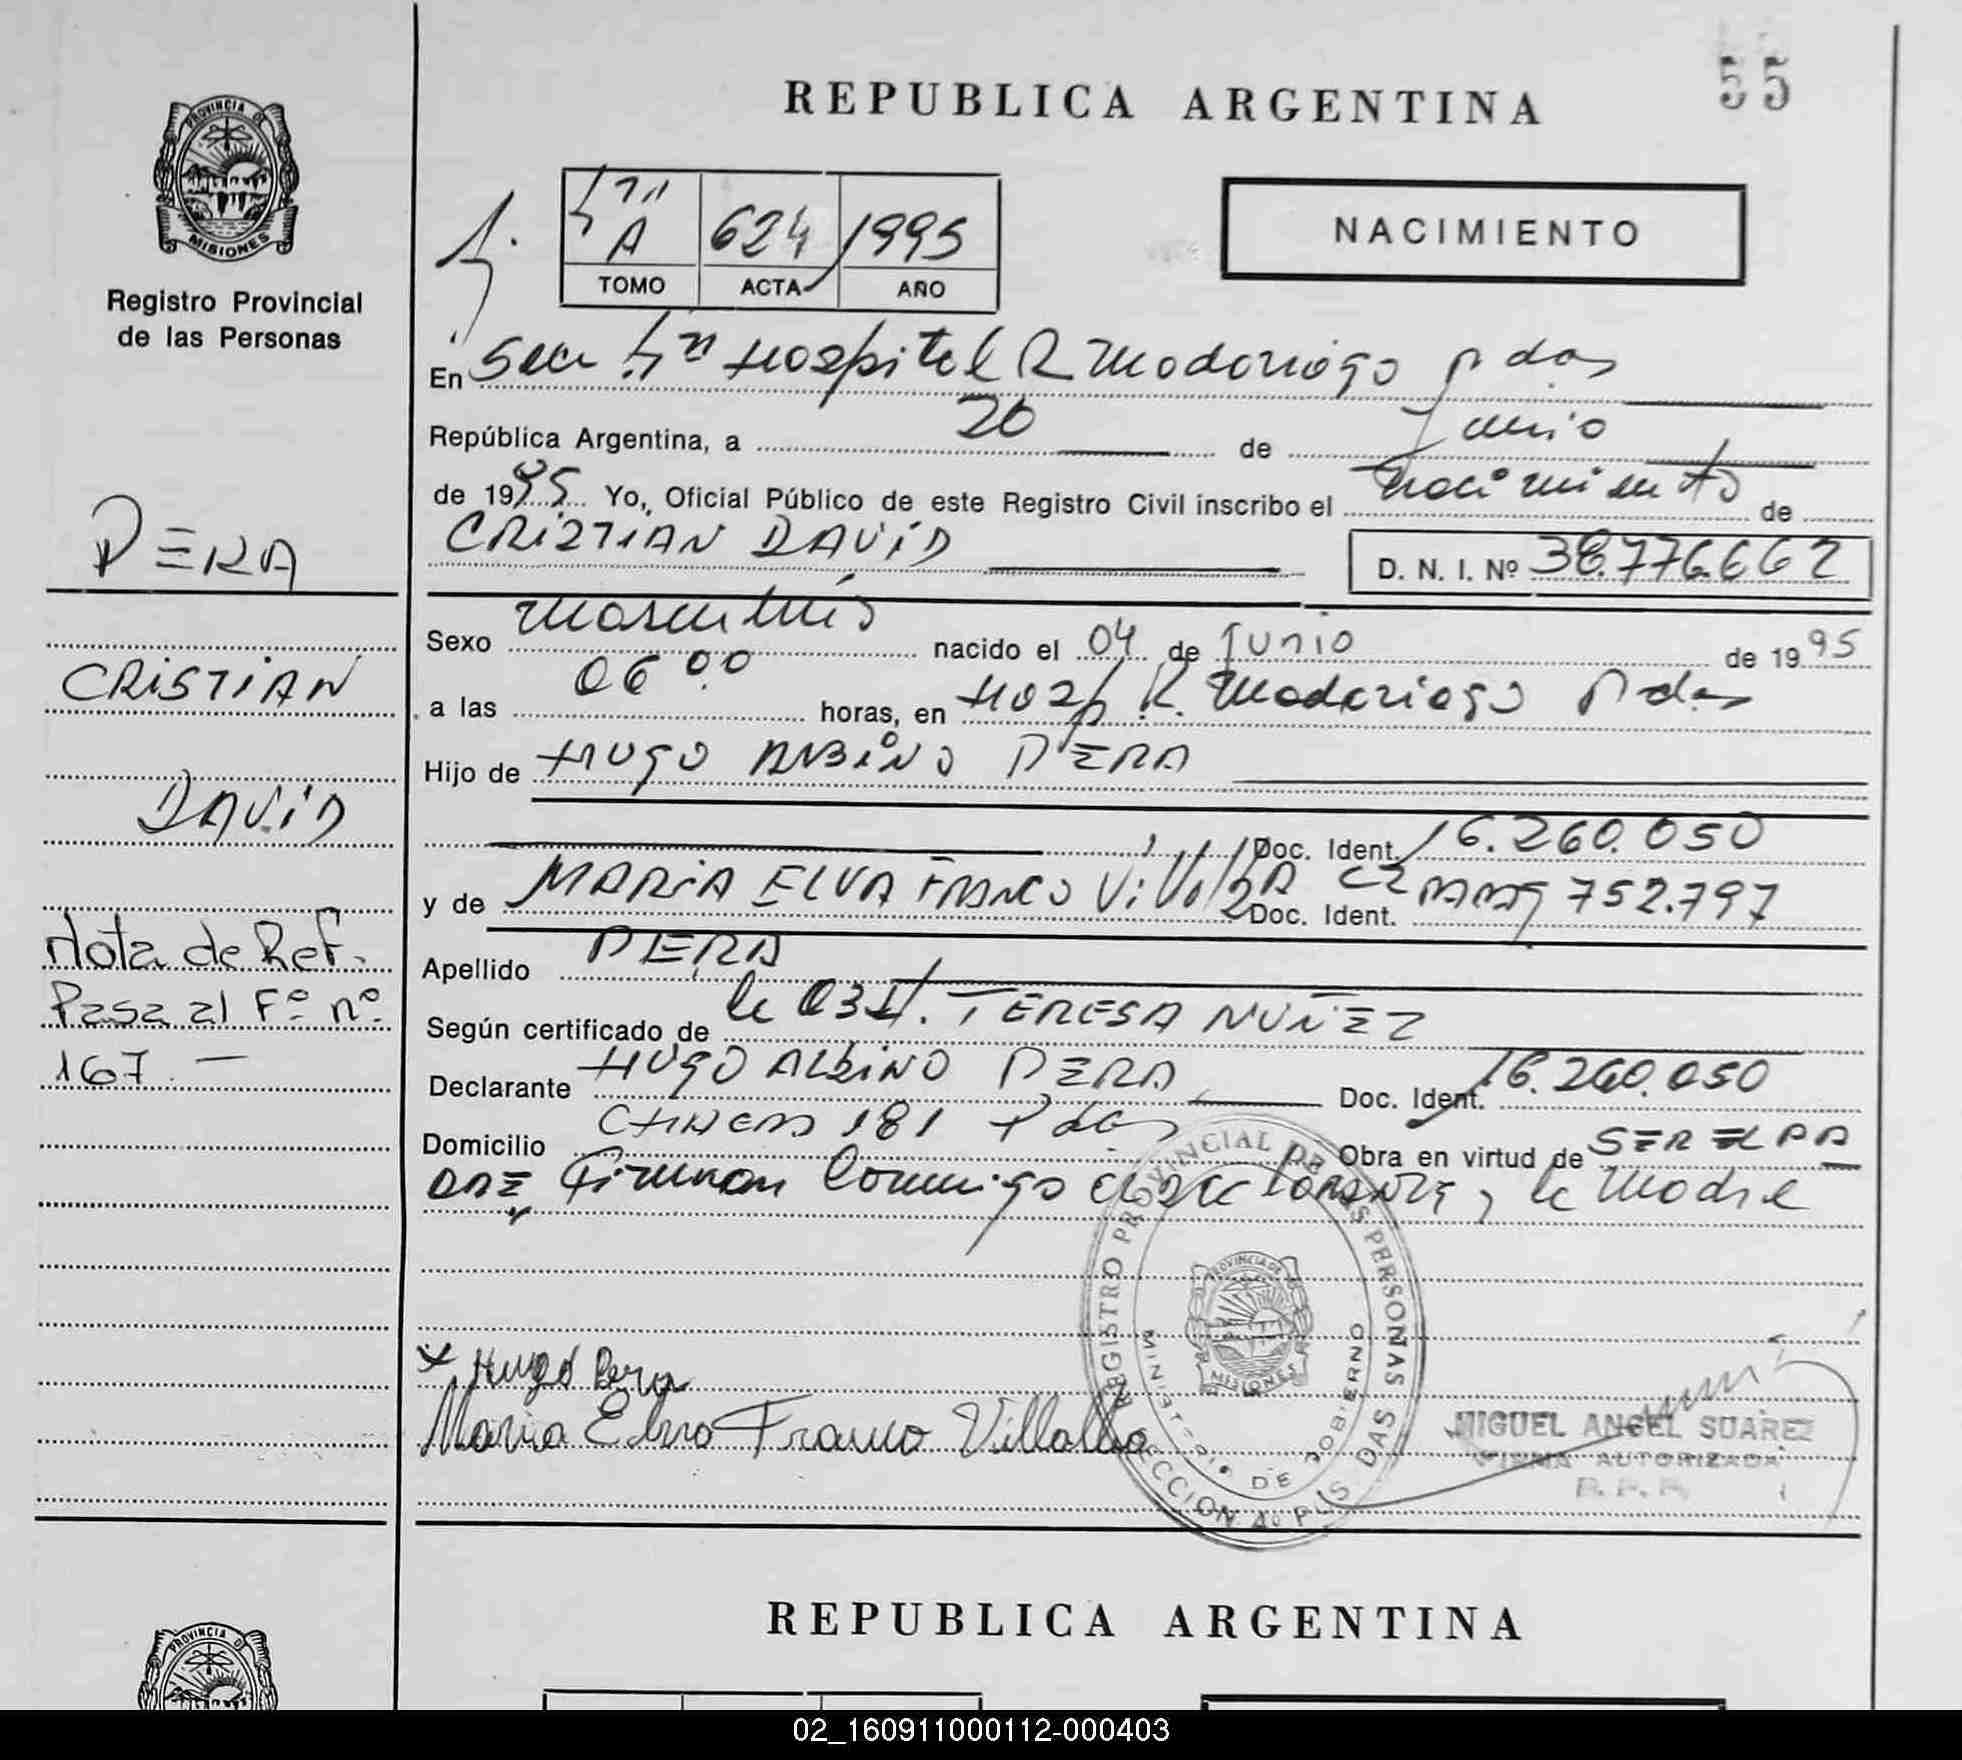 55
REPUBLICA ARGENTINA
PROVINCIA DE
MISIONES
Registro Provincial
de las Personas
4ta A 624 1995
TOMO ACTA AÑO
NACIMIENTO
En Secc 4ta Hospital R Madariaga Pdas
República Argentina, a 20 de Junio
de 1995 Yo, Oficial Público de este Registro Civil inscribo el nacimiento de
CRISTIAN DAVID D. N. I. Nº 38.776.662
Sexo masculino nacido el 04 de Junio de 1995
a las 06 00 horas, en Hosp R. Madariaga Pdas
Hijo de HUGO ALBINO PERA
Doc. Ident. 16.260.050
y de MARIA ELVA FRANCO Villalba Doc. Ident. 752.797
Apellido PERA
Según certificado de la Obst. TERESA NUÑEZ
Declarante HUGO ALBINO PERA Doc. Ident. 16.260.050
Domicilio 181 Pdas Obra en virtud de SER EL PA
DRE Firman Conmigo el declarante y la Madre
PERA
CRISTIAN
DAVID
Nota de Ref.
Pasa al Fº nº
167.—
Hugo Pera
Maria Elva Franco Villalba
REGISTRO PROVINCIAL DE LAS PERSONAS
MINISTERIO DE GOBIERNO
PROVINCIA DE
MISIONES
MIGUEL ANGEL SUAREZ
FIRMA AUTORIZADA
R. P. P.
REPUBLICA ARGENTINA
PROVINCIA D
02_160911000112-000403